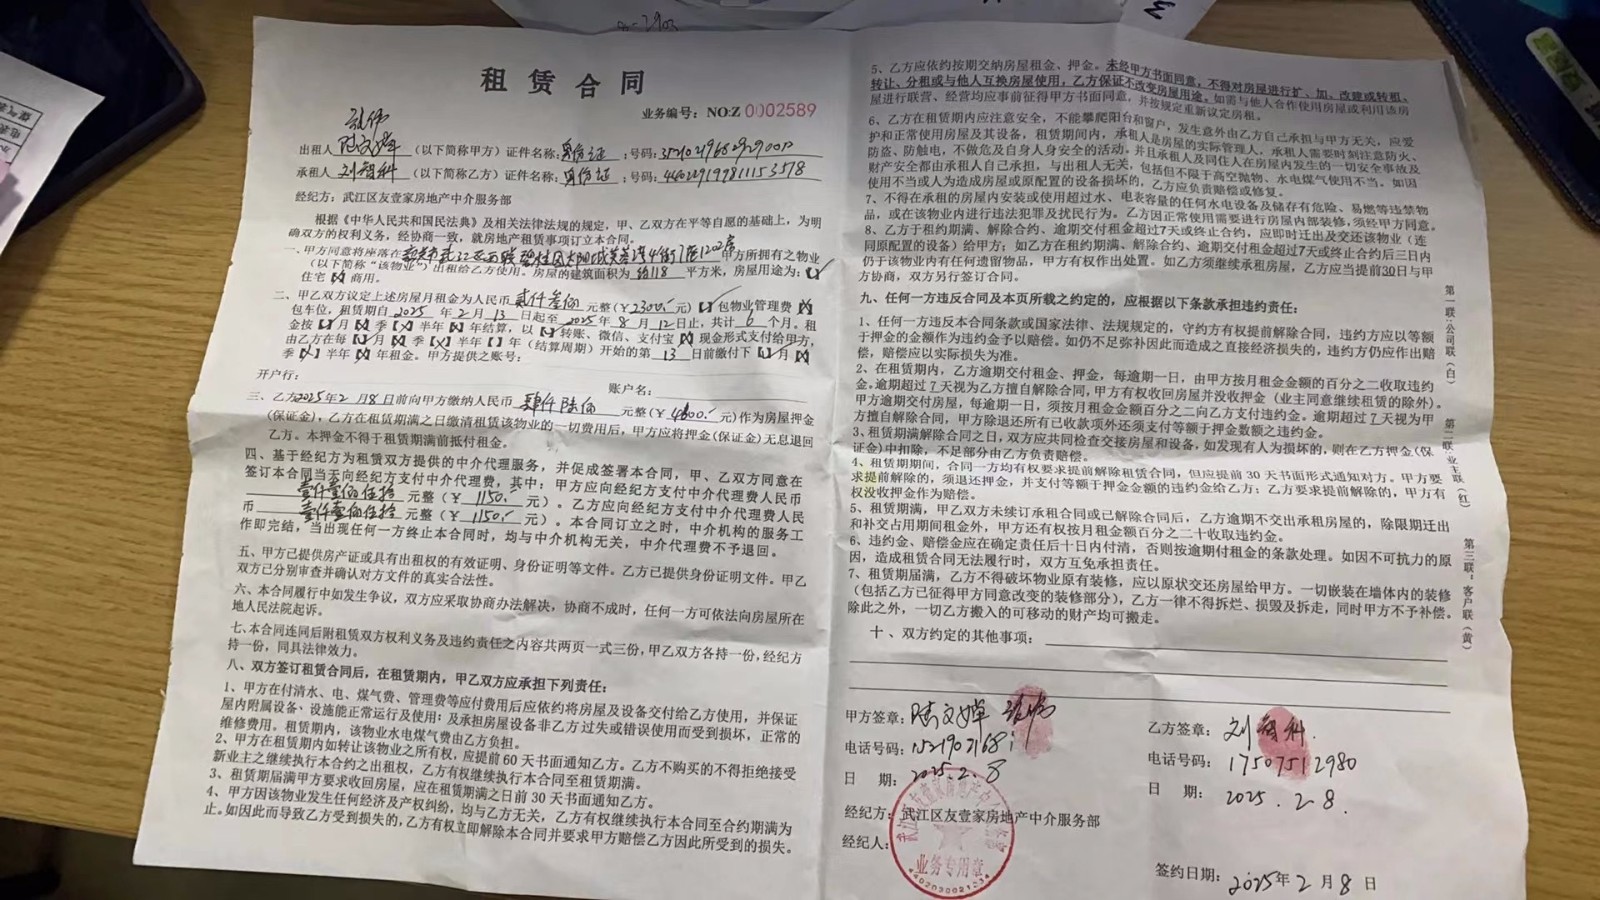 租赁合同
业务编号：NO:Z 0002589
出租人 陆文婵 （以下简称甲方）证件名称：身份证 ；号码：
承租人 刘智科 （以下简称乙方）证件名称：身份证 ；号码：
经纪方：武江区友壹家房地产中介服务部
根据《中华人民共和国民法典》及相关法律法规的规定，甲、乙双方在平等自愿的基础上，为明
确双方的权利义务，经协商一致，就房地产租赁事项订立本合同。
一、甲方同意将座落在 甲方所拥有之物业
（以下简称“该物业”）出租给乙方使用。房屋的建筑面积为 约118 平方米，房屋用途为：【√】
住宅【×】商用。
二、甲乙双方议定上述房屋月租金为人民币 贰仟叁佰 元整（￥2300.-元）【√】包物业管理费【×】
包车位，租赁期自 2025 年 2 月 13 日起至 2025 年 8 月 12 日止，共计 6 个月。租
金按【√】月【×】季【×】半年【×】年结算，以【√】转账、微信、支付宝【×】现金形式支付给甲方，
由乙方在每【√】月【×】季【×】半年【】年（结算周期）开始的第 13 日前缴付下【√】月【×】
季【×】半年【×】年租金。甲方提供之账号：
开户行： 账户名：
三、乙方2025年2月8日前向甲方缴纳人民币 肆仟陆佰 元整（￥4600.-元）作为房屋押金
(保证金)，乙方在租赁期满之日缴清租赁该物业的一切费用后，甲方应将押金(保证金)无息退回
乙方。本押金不得于租赁期满前抵付租金。
四、基于经纪方为租赁双方提供的中介代理服务，并促成签署本合同，甲、乙双方同意在
签订本合同当天向经纪方支付中介代理费，其中：甲方应向经纪方支付中介代理费人民币
壹仟壹佰伍拾 元整（￥ 1150.- 元）。乙方应向经纪方支付中介代理费人民
币 壹仟壹佰伍拾 元整（￥ 1150.- 元）。本合同订立之时，中介机构的服务工
作即完结，当出现任何一方终止本合同时，均与中介机构无关，中介代理费不予退回。
五、甲方已提供房产证或具有出租权的有效证明、身份证明等文件。乙方已提供身份证明文件。甲乙
双方已分别审查并确认对方文件的真实合法性。
六、本合同履行中如发生争议，双方应采取协商办法解决，协商不成时，任何一方可依法向房屋所在
地人民法院起诉。
七、本合同连同后附租赁双方权利义务及违约责任之内容共两页一式三份，甲乙双方各持一份，经纪方
持一份，同具法律效力。
八、双方签订租赁合同后，在租赁期内，甲乙双方应承担下列责任：
1、甲方在付清水、电、煤气费、管理费等应付费用后应依约将房屋及设备交付给乙方使用，并保证
屋内附属设备、设施能正常运行及使用；及承担房屋设备非乙方过失或错误使用而受到损坏，正常的
维修费用。租赁期内，该物业水电煤气费由乙方负担。
2、甲方在租赁期内如转让该物业之所有权，应提前60天书面通知乙方。乙方不购买的不得拒绝接受
新业主之继续执行本合约之出租权，乙方有权继续执行本合同至租赁期满。
3、租赁期届满甲方要求收回房屋，应在租赁期满之日前30天书面通知乙方。
4、甲方因该物业发生任何经济及产权纠纷，均与乙方无关，乙方有权继续执行本合同至合约期满为
止。如因此而导致乙方受到损失的，乙方有权立即解除本合同并要求甲方赔偿乙方因此所受到的损失。
5、乙方应依约按期交纳房屋租金、押金。未经甲方书面同意，不得对房屋进行扩、加、改建或转租、
转让、分租或与他人互换房屋使用，乙方保证不改变房屋用途。如需与他人合作使用房屋或利用该房
屋进行联营、经营均应事前征得甲方书面同意，并按规定重新议定房租。
6、乙方在租赁期内应注意安全，不能攀爬阳台和窗户，发生意外由乙方自己承担与甲方无关，应爱
护和正常使用房屋及其设备，租赁期间内，承租人是房屋的实际管理人，承租人需要时刻注意防火、
防盗、防触电，不做危及自身人身安全的活动。并且承租人及同住人在房屋内发生的一切安全事故及
财产安全都由承租人自己承担，与出租人无关，包括但不限于高空抛物、水电煤气使用不当。如因
使用不当或人为造成房屋或原配置的设备损坏的，乙方应负责赔偿或修复。
7、不得在承租的房屋内安装或使用超过水、电表容量的任何水电设备及储存有危险、易燃等违禁物
品，或在该物业内进行违法犯罪及扰民行为。乙方因正常使用需要进行房屋内部装修，须经甲方同意。
8、乙方于租约期满、解除合约、逾期交付租金超过7天或终止合约，应即时迁出及交还该物业（连
同原配置的设备）给甲方；如乙方在租约期满、解除合约、逾期交付租金超过7天或终止合约后三日内
仍于该物业内有任何遗留物品，甲方有权作出处置。如乙方须继续承租房屋，乙方应当提前30日与甲
方协商，双方另行签订合同。
九、任何一方违反合同及本页所载之约定的，应根据以下条款承担违约责任：
1、任何一方违反本合同条款或国家法律、法规规定的，守约方有权提前解除合同，违约方应以等额
于押金的金额作为违约金予以赔偿。如仍不足弥补因此而造成之直接经济损失的，违约方仍应作出赔
偿，赔偿应以实际损失为准。
2、在租赁期内，乙方逾期交付租金、押金，每逾期一日，由甲方按月租金金额的百分之二收取违约
金。逾期超过7天视为乙方擅自解除合同，甲方有权收回房屋并没收押金（业主同意继续租赁的除外）。
甲方逾期交付房屋，每逾期一日，须按月租金金额百分之二向乙方支付违约金。逾期超过7天视为甲
方擅自解除合同，甲方除退还所有已收款项外还须支付等额于押金数额之违约金。
3、租赁期满解除合同之日，双方应共同检查交接房屋和设备，如发现有人为损坏的，则在乙方押金(保
证金)中扣除，不足部分由乙方负责赔偿。
4、租赁期期间，合同一方均有权要求提前解除租赁合同，但应提前30天书面形式通知对方。甲方要
求提前解除的，须退还押金，并支付等额于押金金额的违约金给乙方；乙方要求提前解除的，甲方有
权没收押金作为赔偿。
5、租赁期满，甲乙双方未续订承租合同或已解除合同后，乙方逾期不交出承租房屋的，除限期迁出
和补交占用期间租金外，甲方还有权按月租金额百分之二十收取违约金。
6、违约金、赔偿金应在确定责任后十日内付清，否则按逾期付租金的条款处理。如因不可抗力的原
因，造成租赁合同无法履行时，双方互免承担责任。
7、租赁期届满，乙方不得破坏物业原有装修，应以原状交还房屋给甲方。一切嵌装在墙体内的装修
（包括乙方已征得甲方同意改变的装修部分），乙方一律不得拆烂、损毁及拆走，同时甲方不予补偿。
除此之外，一切乙方搬入的可移动的财产均可搬走。
十、双方约定的其他事项：
甲方签章：陆文婵
电话号码：
日 期：2025.2.8
经纪方：武江区友壹家房地产中介服务部
经纪人：
业务专用章
乙方签章：刘智科
电话号码：17507512980
日 期：2025.2.8.
签约日期：2025年2月8日
第一联：公司联（白）
第二联：业主联（红）
第三联：客户联（黄）